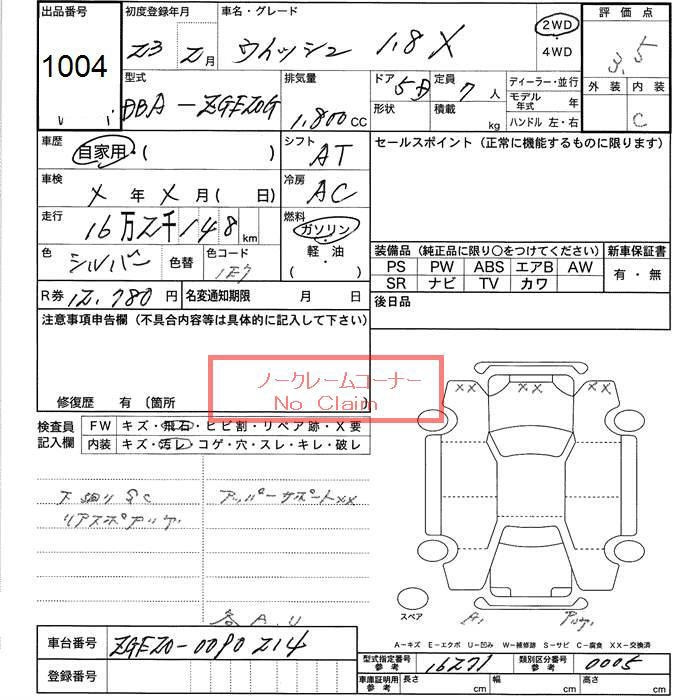 出品番号
1004
初度登録年月
23 2月
車名・グレード
ウィッシュ 1.8 X
2WD
4WD
評価点
3.5
外装 内装
C
型式
DBA-ZGE20G
排気量
1,800 CC
ドア
5D
定員
7人
形状
積載
kg
ディーラー・並行
モデル年式 年
ハンドル 左・右
車歴
自家用・( )
シフト
AT
セールスポイント(正常に機能するものに限ります)
車検
X年X月( 日)
冷房
AC
走行
16万2千148km
燃料
ガソリン
軽・油
( )
色
シルバー
色替
色コード
1E7
装備品(純正品に限り○をつけてください)
新車保証書
PS PW ABS エアB AW
SR ナビ TV カワ
有・無
R券 12,780円
名変通知期限 月 日
後日品
注意事項申告欄(不具合内容等は具体的に記入して下さい)
ノークレームコーナー
No Claim
修復歴 有 (箇所
検査員記入欄
FW キズ・飛石・ヒビ割・リペア跡・X要
内装 キズ・汚レ・コゲ・穴・スレ・キレ・破レ
下廻りSC
アッパーサポートXX
リアスポアルケ
XX XX XX
スペア
各A.U
A-キズ E-エクボ U-凹み W-補修跡 S-サビ C-腐食 XX-交換済
車台番号
ZGE20-0090214
登録番号
型式指定番号参考
16271
類別区分番号参考
0005
車庫証明用参考
長さ cm
幅 cm
高さ cm